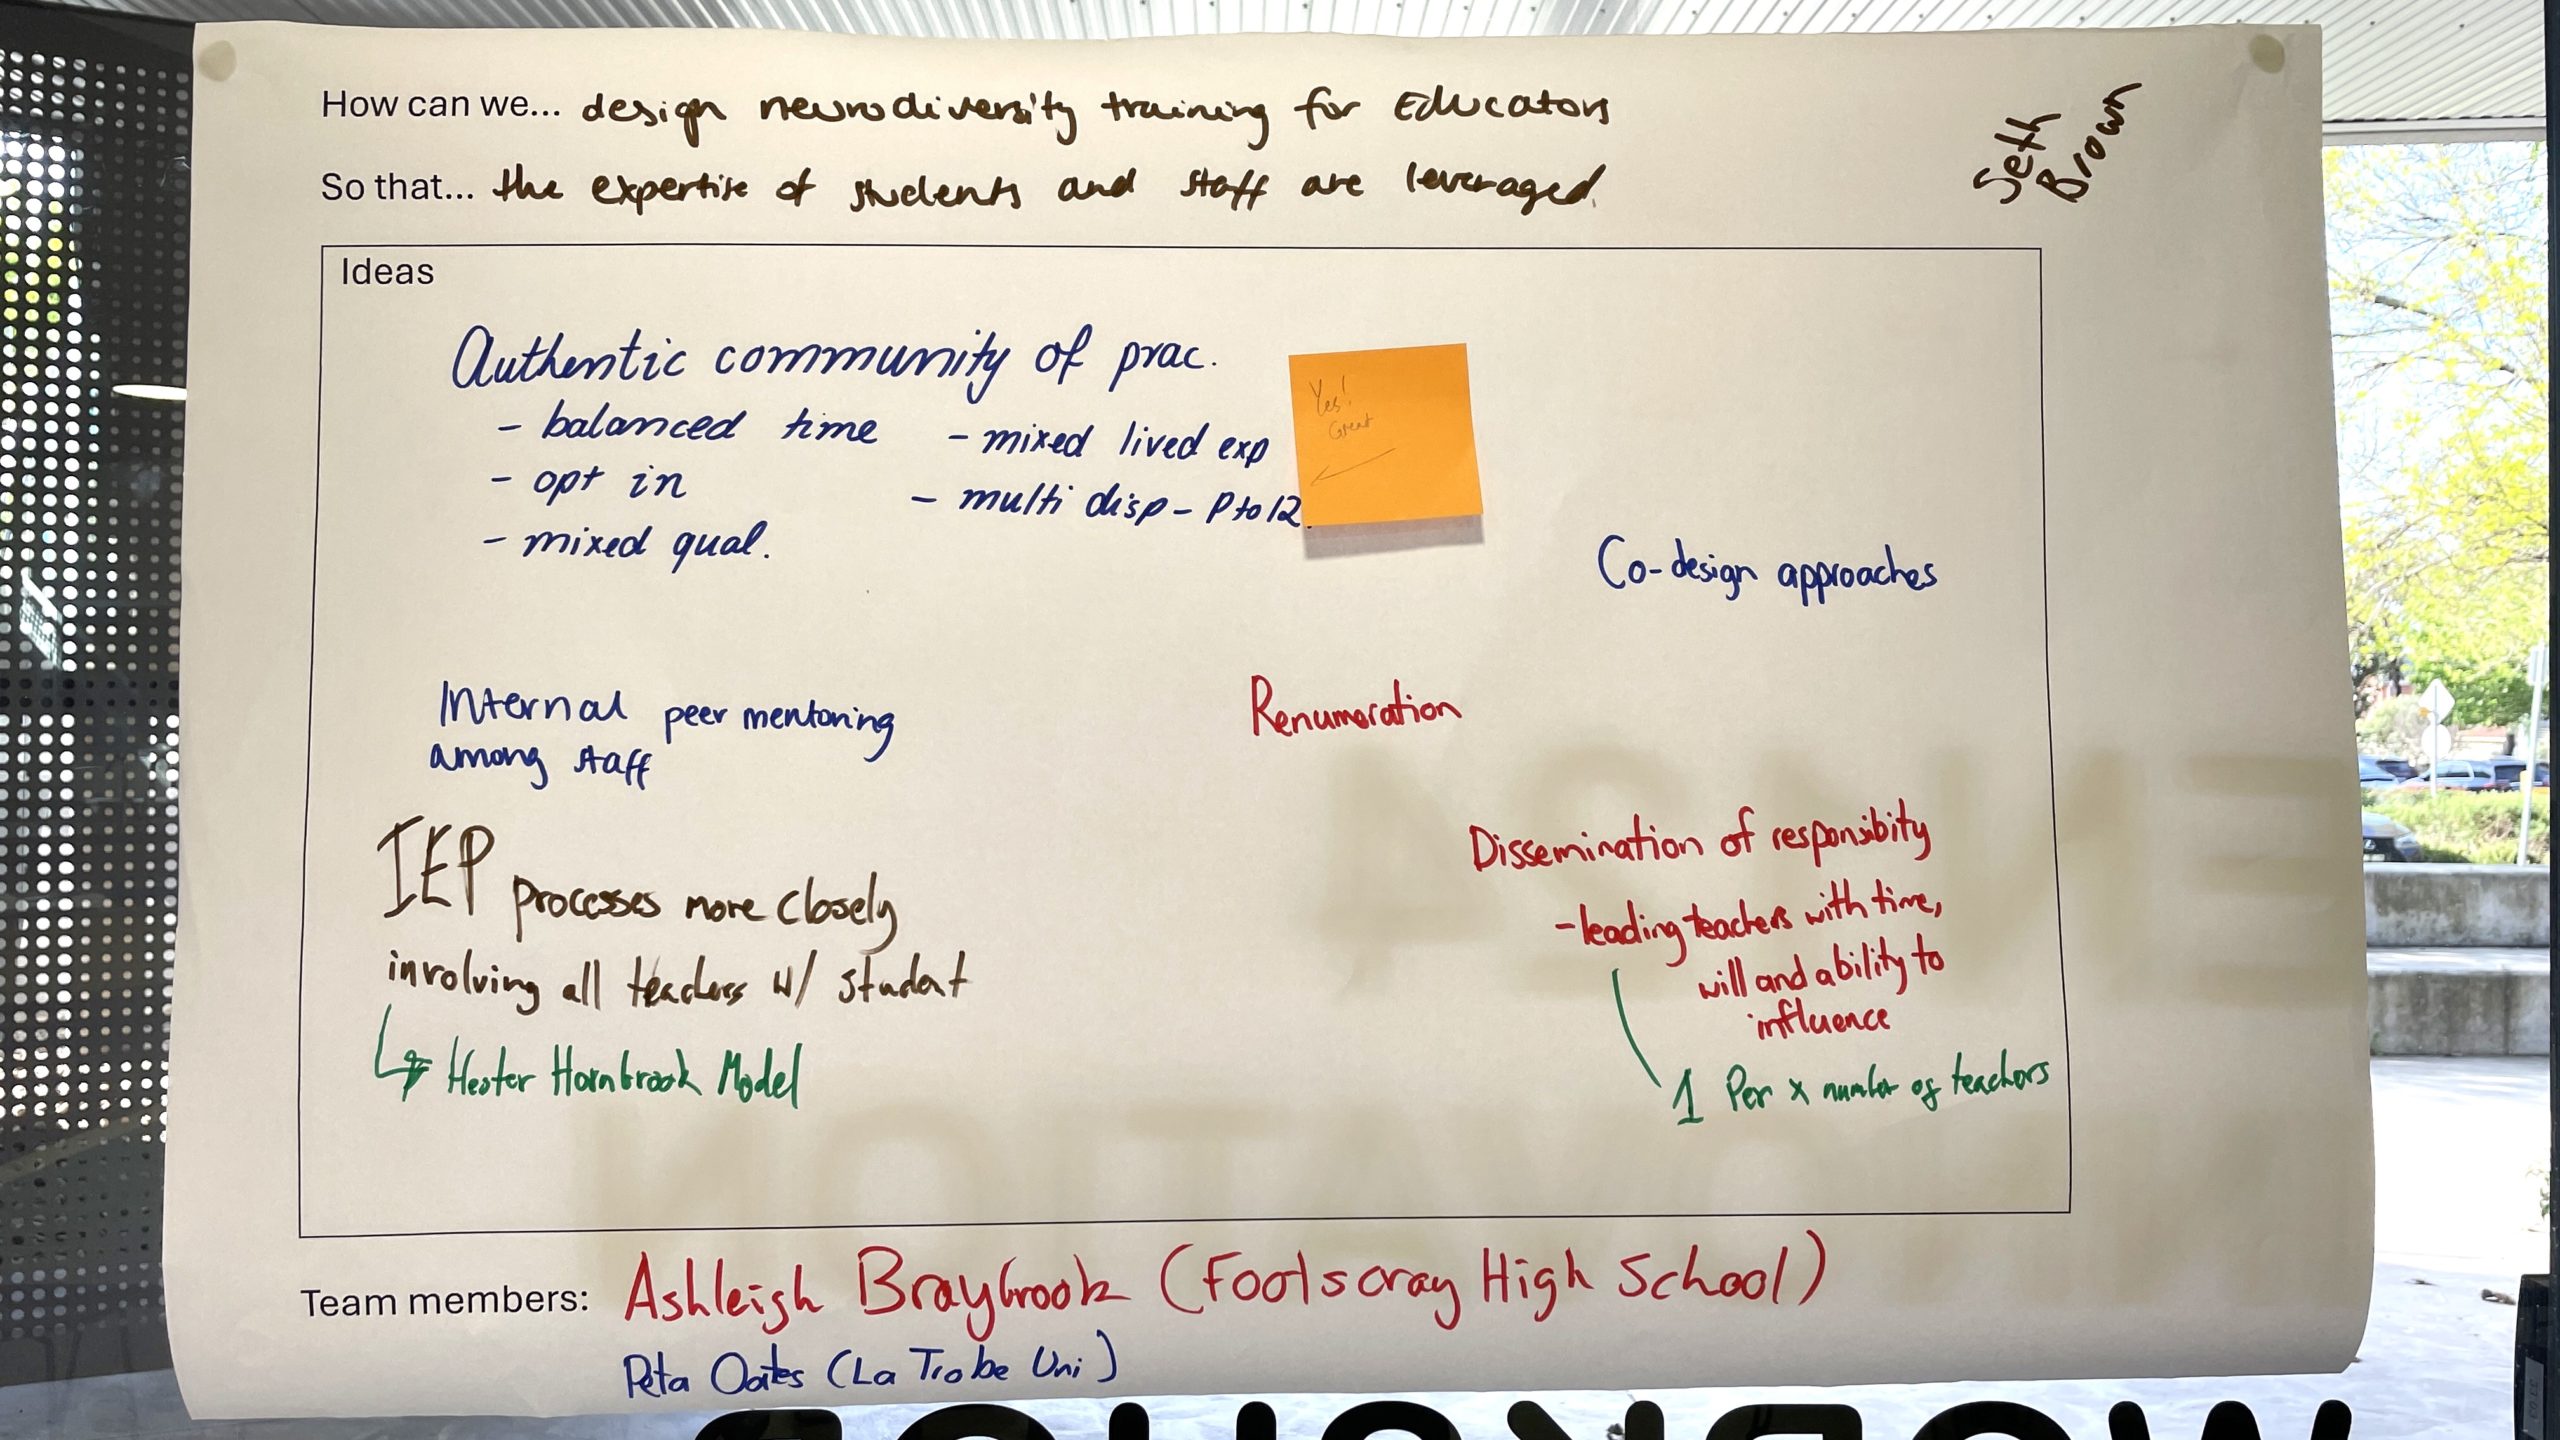 How can we... design neurodiversity training for Educators
So that... the expertise of students and staff are leveraged.
Seth
Brown
Ideas
Authentic community of prac.
- balanced time
- opt in
- mixed qual.
- mixed lived exp
- multi disp - P to 12.
Yes!
Great
Co-design approaches
Internal peer mentoring
among staff
Renumeration
IEP processes more closely
involving all teachers w/ student
Hester Hornbrook Model
Dissemination of responsibity
- leading teachers with time,
will and ability to
influence
1 Per x number of teachers
Team members: Ashleigh Braybrook (Footscray High School)
Peta Oates (La Trobe Uni)
WORKSHOP